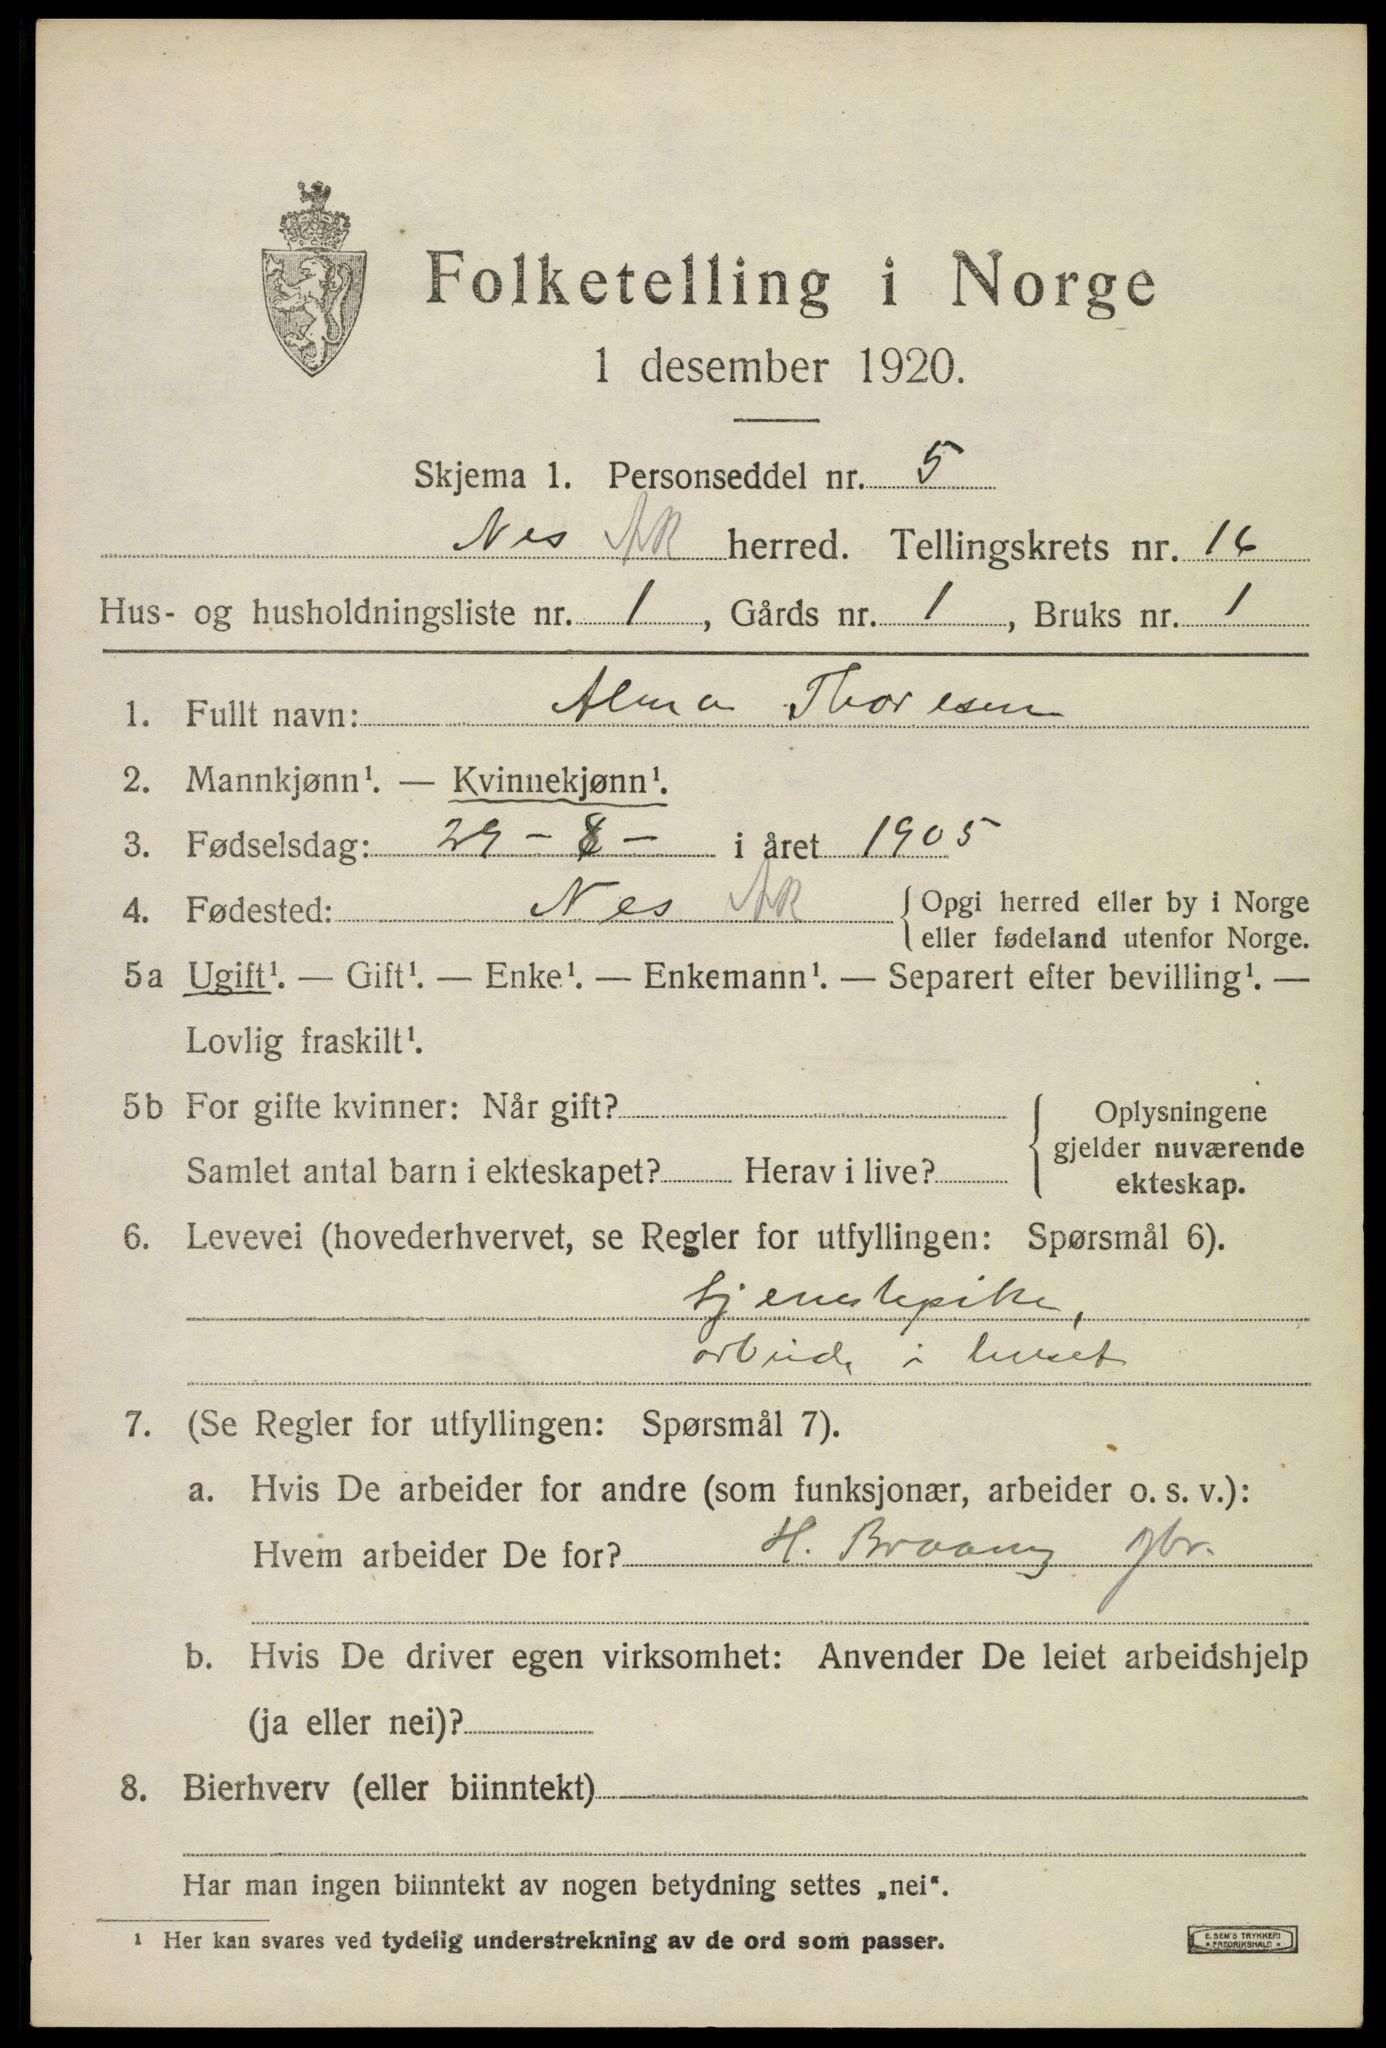 Folketelling i Norge
1 desember 1920.
Skjema 1. Personseddel nr. 5
Nes AK herred. Tellingskrets nr. 16
Hus- og husholdningsliste nr. 1, Gårds nr. 1, Bruks nr. 1
1. Fullt navn: Alma Thoresen
2. Mannkjønn¹. — Kvinnekjønn¹.
3. Fødselsdag: 29 - 8 - i året 1905
4. Fødested: Nes AK { Opgi herred eller by i Norge
eller fødeland utenfor Norge.
5a Ugift¹. — Gift¹. — Enke¹. — Enkemann¹. — Separert efter bevilling¹. —
Lovlig fraskilt¹.
5b For gifte kvinner: Når gift?
Samlet antal barn i ekteskapet? Herav i live?
{ Oplysningene
gjelder nuværende
ekteskap.
6. Levevei (hovederhvervet, se Regler for utfyllingen: Spørsmål 6).
tjenestepike,
arbeide i huset
7. (Se Regler for utfyllingen: Spørsmål 7).
a. Hvis De arbeider for andre (som funksjonær, arbeider o. s. v.):
Hvem arbeider De for? H. gbr.
b. Hvis De driver egen virksomhet: Anvender De leiet arbeidshjelp
(ja eller nei)?
8. Bierhverv (eller biinntekt)
Har man ingen biinntekt av nogen betydning settes „nei“.
¹ Her kan svares ved tydelig understrekning av de ord som passer.
E. SEM'S TRYKKERI
• FREDRIKSHALD •